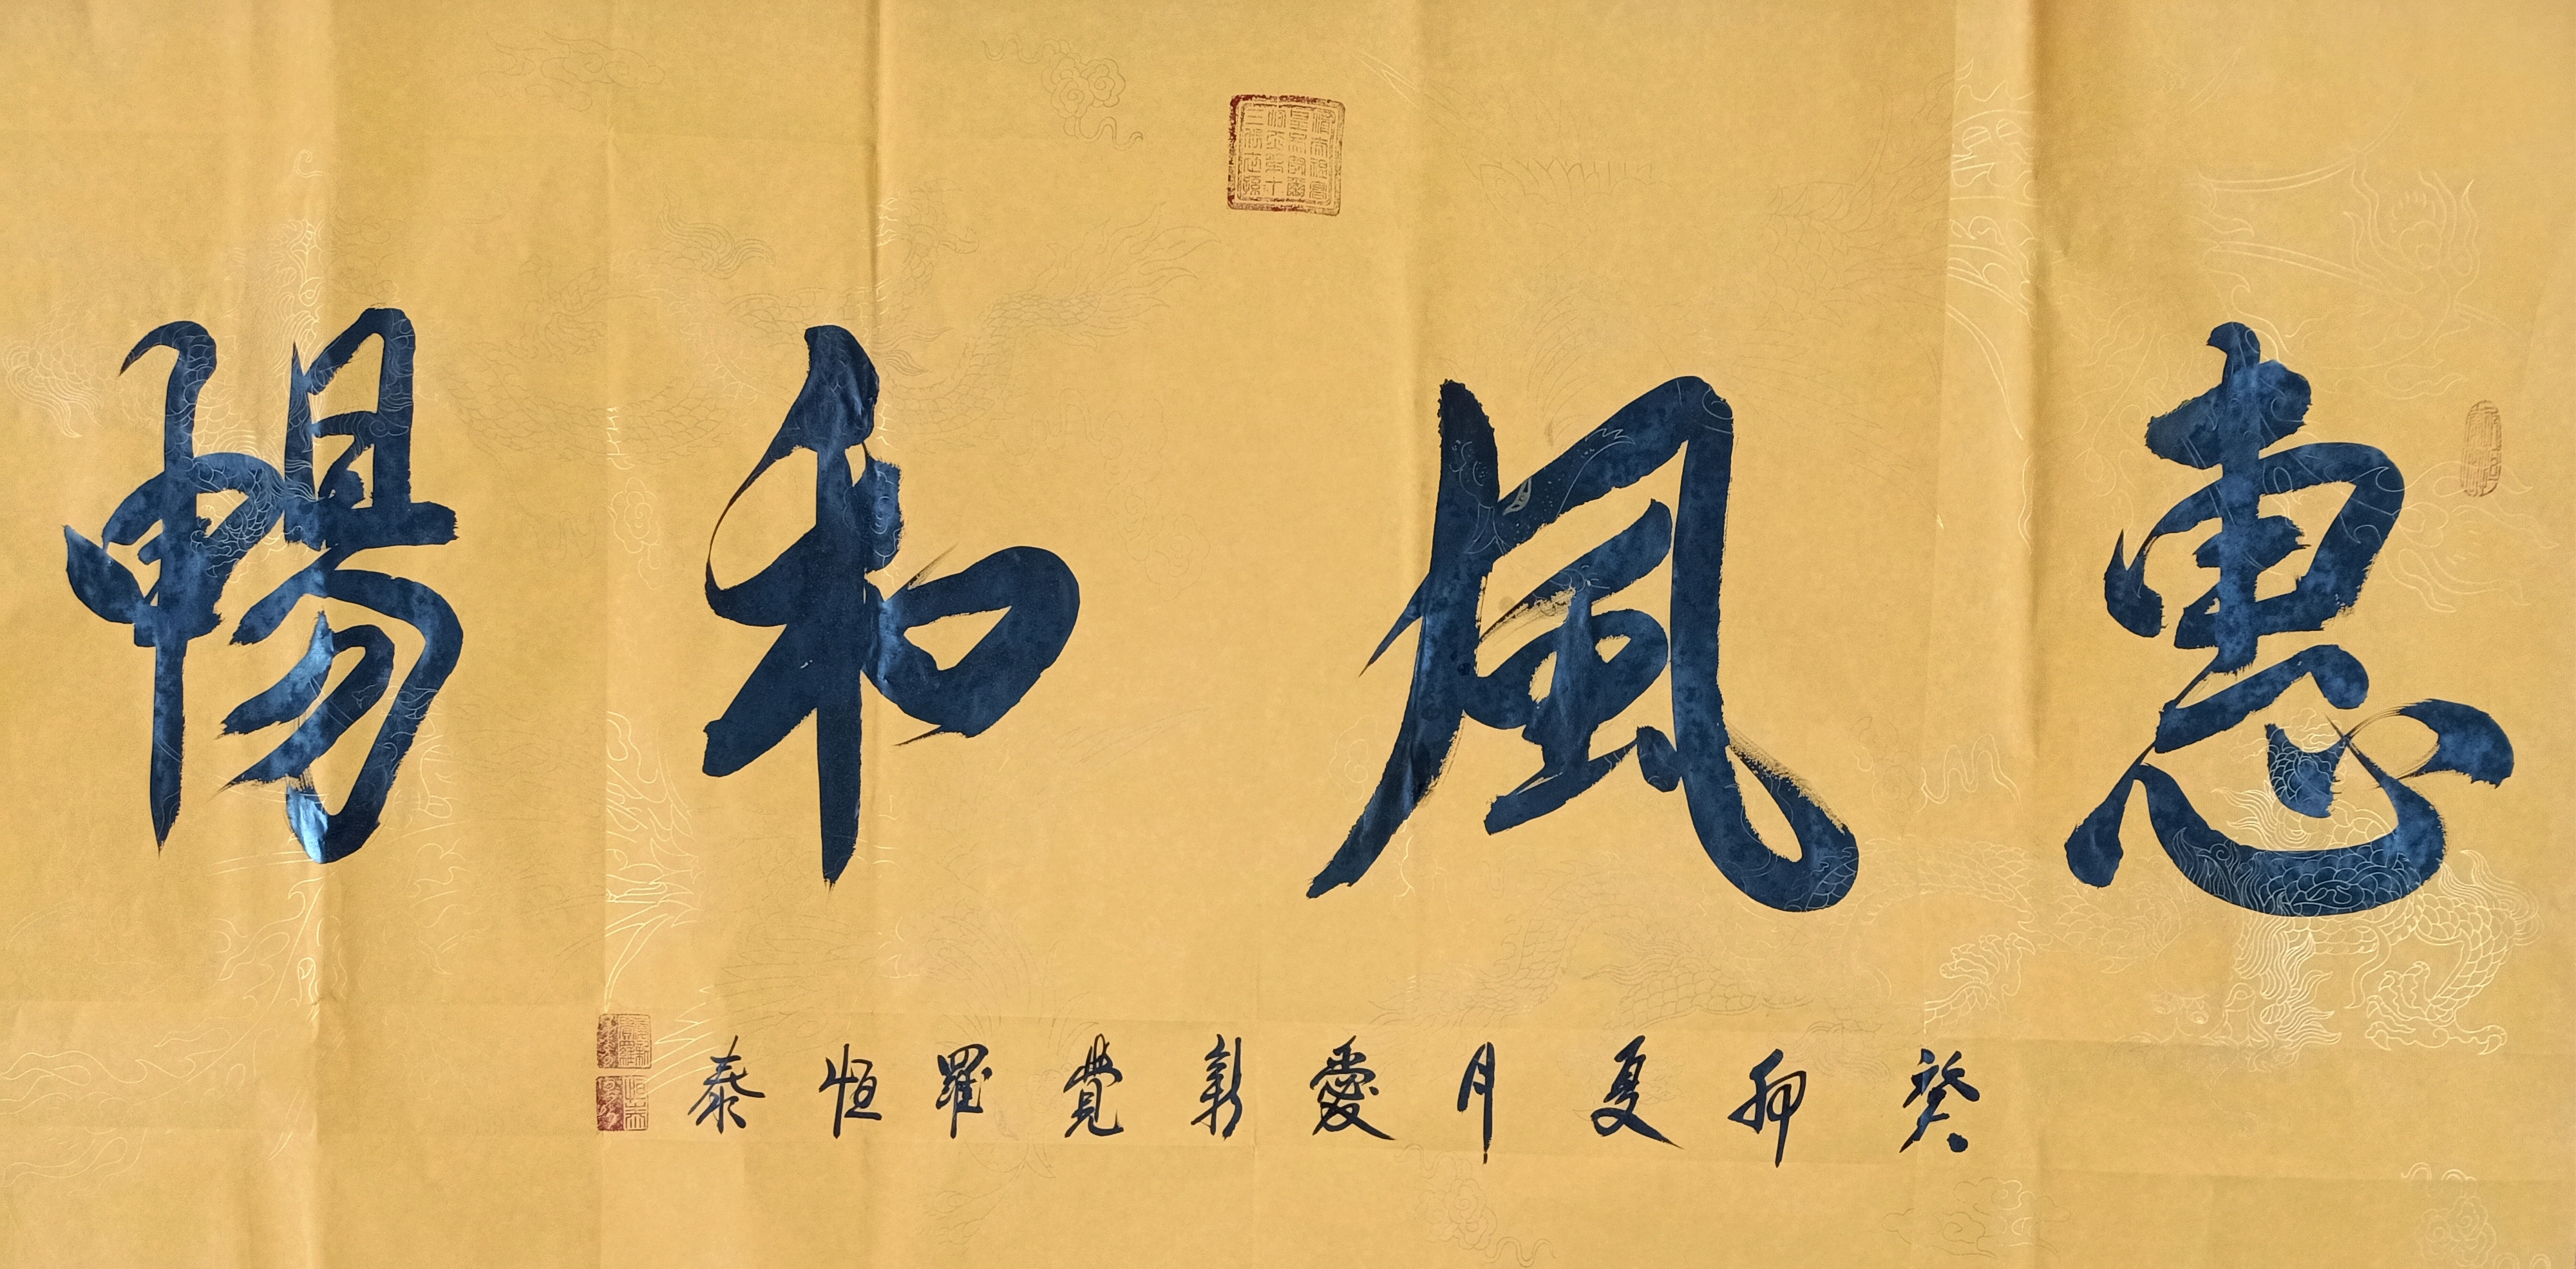 惠風和暢
癸卯夏月愛新覺羅恒泰